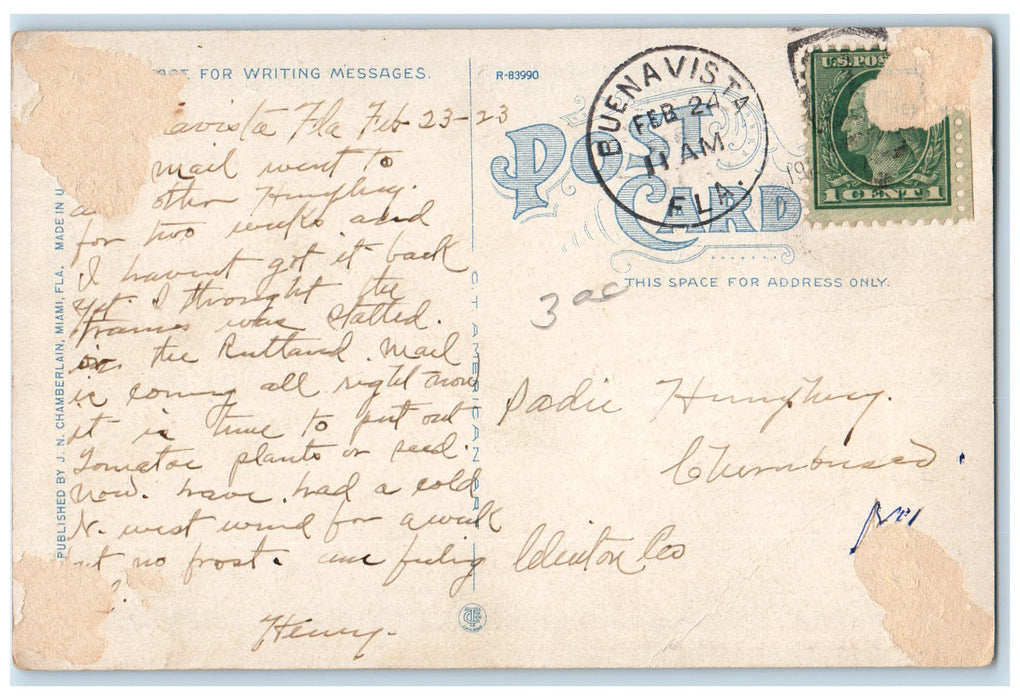 FOR WRITING MESSAGES.
R-83990
avista Fla Feb 23-23
mail went to
other Humphrey.
for two weeks and
I havent got it back
yet I throught the
trains was stalled.
in the Rutland. Mail
is coming all right now
it is time to put out
Tomatoe plants or seed.
now. have had a cold
N. west wind for a week
but no frost. am feeling
Henry.
PUBLISHED BY J. N. CHAMBERLAIN, MIAMI, FLA. MADE IN U
C. T. AMERICAN ART
POST CARD
BUENA VISTA
FEB 24
11 AM
FLA.
U.S. POS
1 CENT 1
THIS SPACE FOR ADDRESS ONLY.
3 00
Sadie Humphrey.
Churubusco
Clinton Co